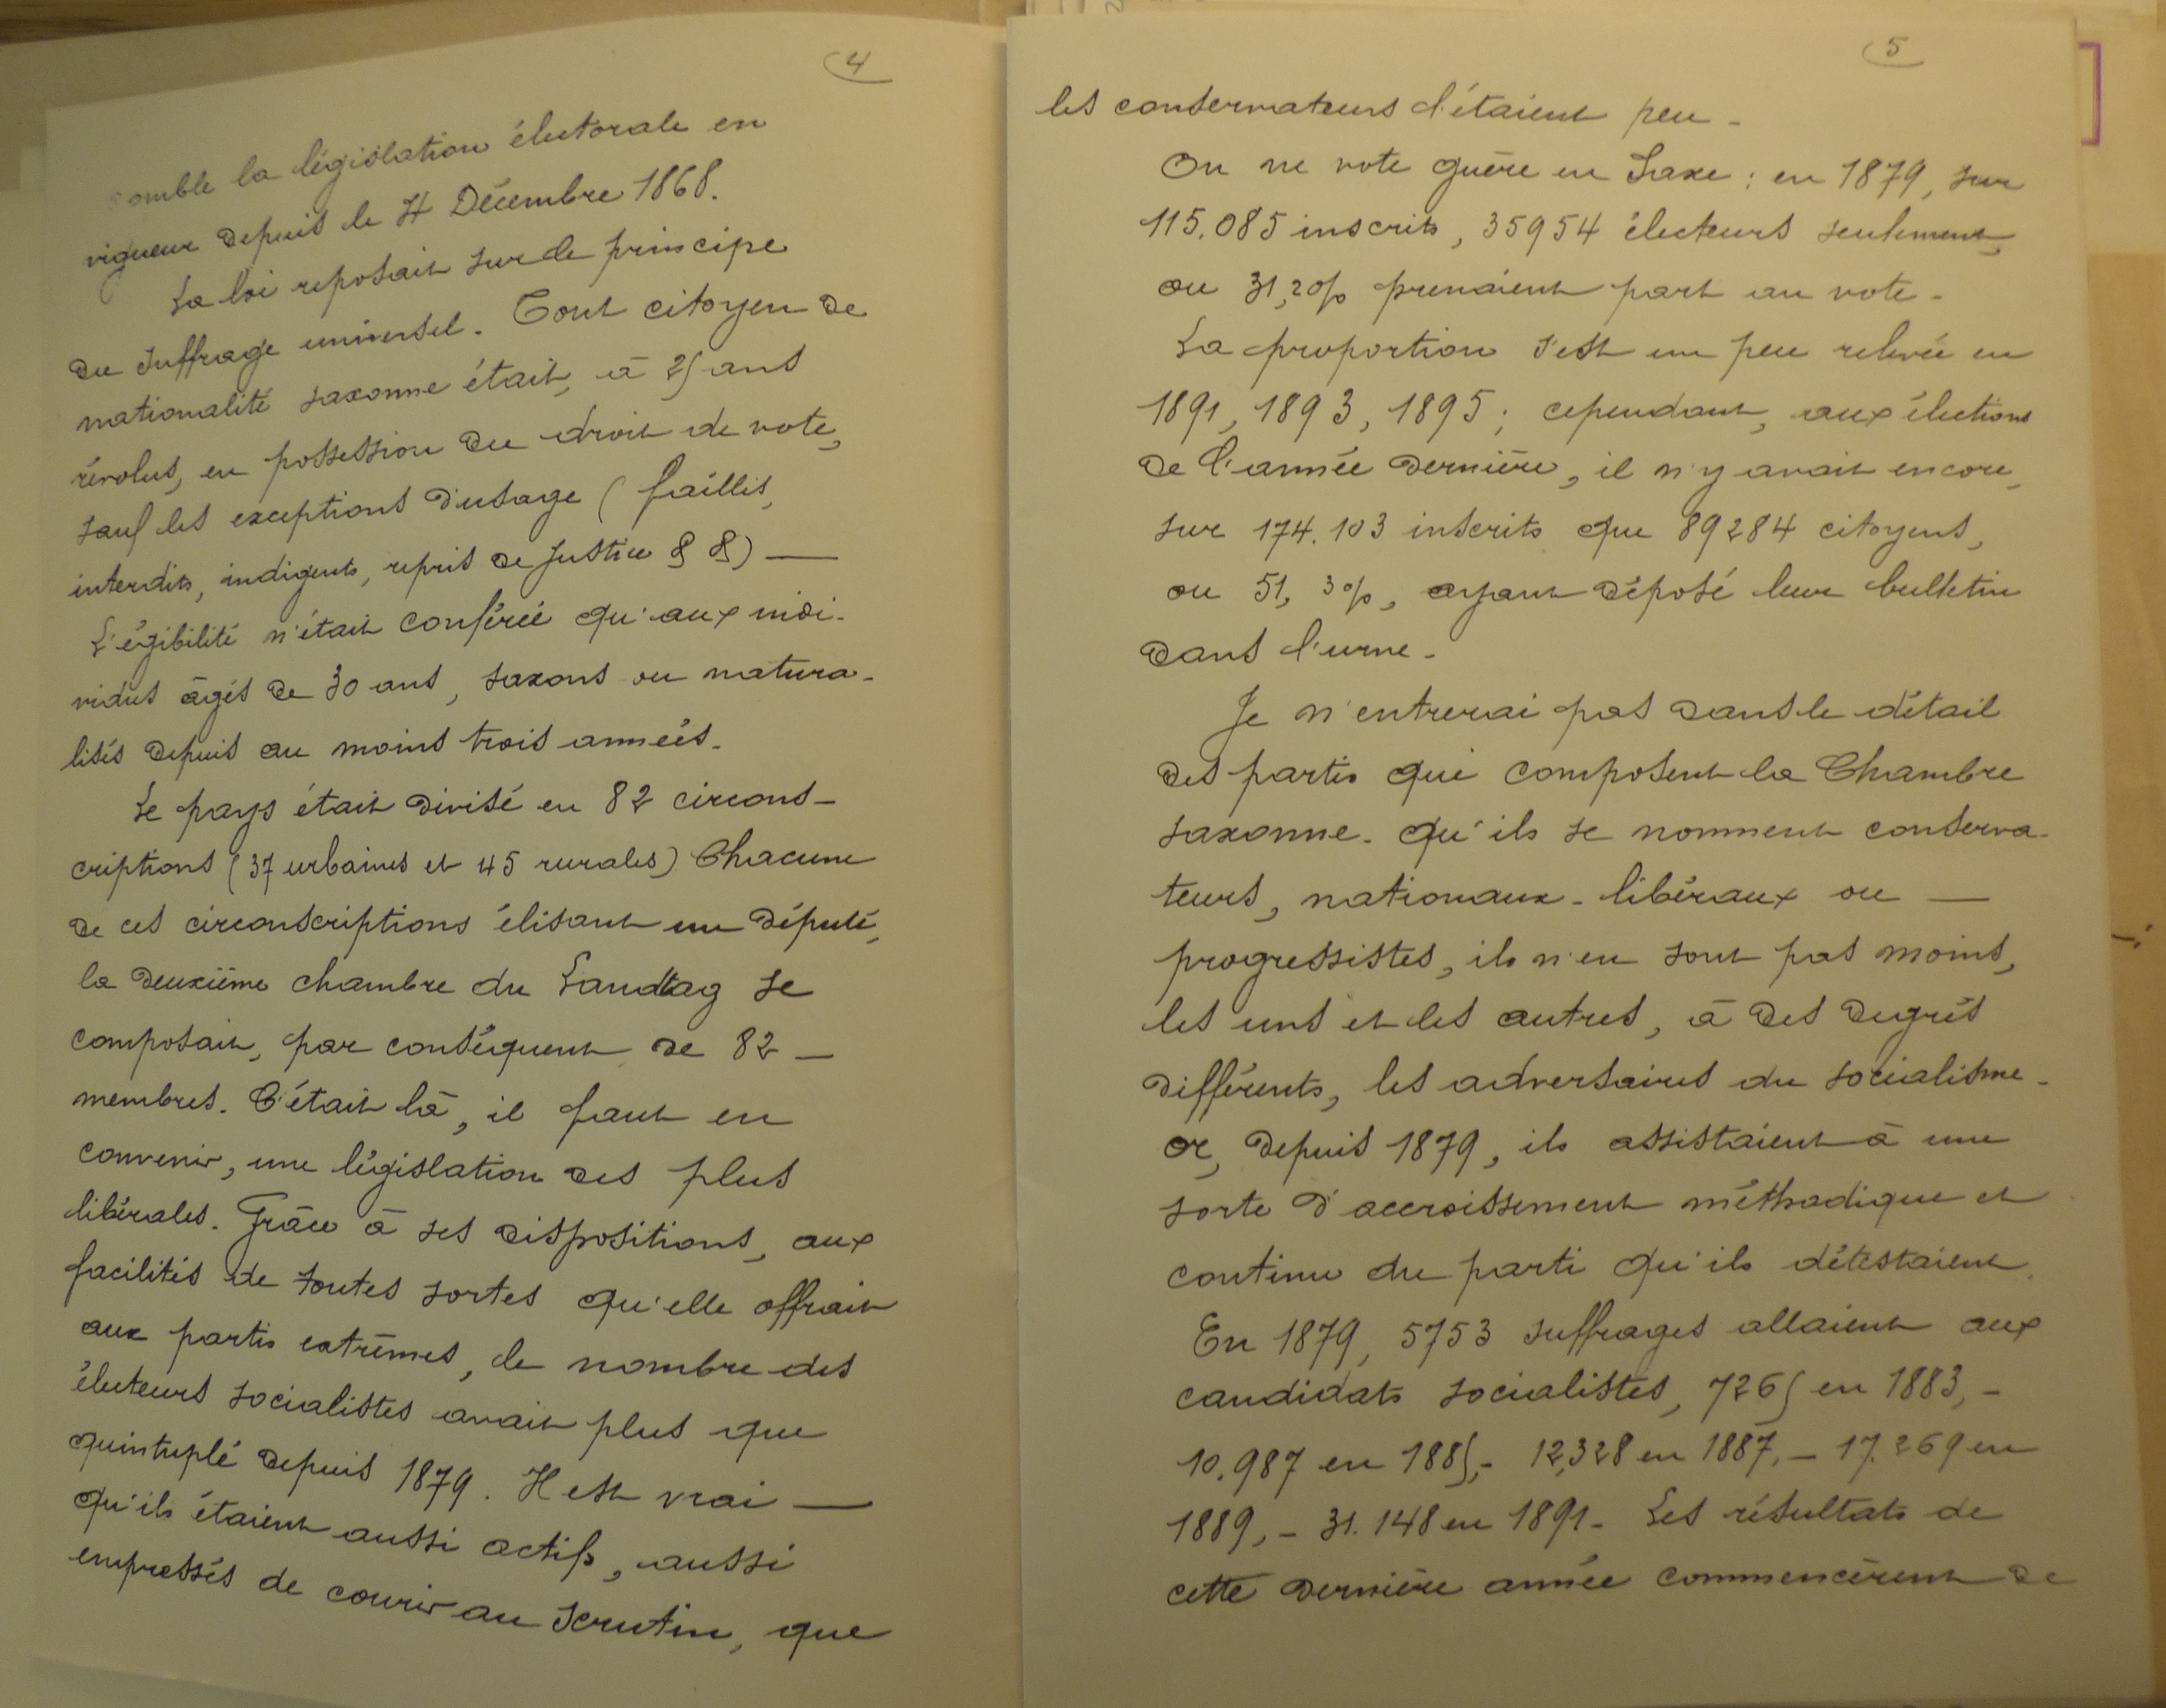 4
comble la législation électorale en
vigueur depuis le Décembre 1868.
La loi reposait sur le principe
du suffrage universel. Tout citoyen de
nationalité saxonne était, à 25 ans
révolus, en possession du droit de vote,
sauf les exceptions d'usage (faillis,
interdits, indigents, repris de justice &&) —
L'égibilité n'était conférée qu'aux indi-
vidus âgés de 30 ans, saxons ou natura-
lisés depuis au moins trois années.
Le pays était divisé en 82 circons-
criptions (37 urbaines et 45 rurales) Chacune
de ces circonscriptions élisant un député,
la deuxième chambre du Landtag se
composait, par conséquent de 82 —
membres. C'était là, il faut en
convenir, une législation des plus
libérales. Grâce à ses dispositions, aux
facilités de toutes sortes qu'elle offrait
aux partis extrêmes, le nombre des
électeurs socialistes avait plus que
quintuplé depuis 1879. Il est vrai —
qu'ils étaient aussi actifs, aussi
empressés de courir au scrutin, que
5
les conservateurs l'étaient peu.
On ne vote guère en Saxe : en 1879, sur
115.085 inscrits, 35954 électeurs seulement,
ou 31,2% prenaient part au vote.
La proportion s'est un peu relevée en
1891, 1893, 1895 ; cependant, aux élections
de l'année dernière, il n'y avait encore,
sur 174.103 inscrits que 89284 citoyens,
ou 51,3%, ayant déposé leur bulletin
dans l'urne.
Je n'entrerai pas dans le détail
des partis qui composent la Chambre
saxonne. Qu'ils se nomment conserva-
teurs, nationaux-libéraux ou —
progressistes, ils n'en sont pas moins,
les uns et les autres, à des degrés
différents, les adversaires du socialisme.
Or, depuis 1879, ils assistaient à une
sorte d'accroissement méthodique et
continu du parti qu'ils détestaient.
En 1879, 5753 suffrages allaient aux
candidats socialistes, 7265 en 1883, —
10.987 en 1885, - 12,328 en 1887, — 17.269 en
1889, - 31.148 en 1891. Les résultats de
cette dernière année commencèrent de